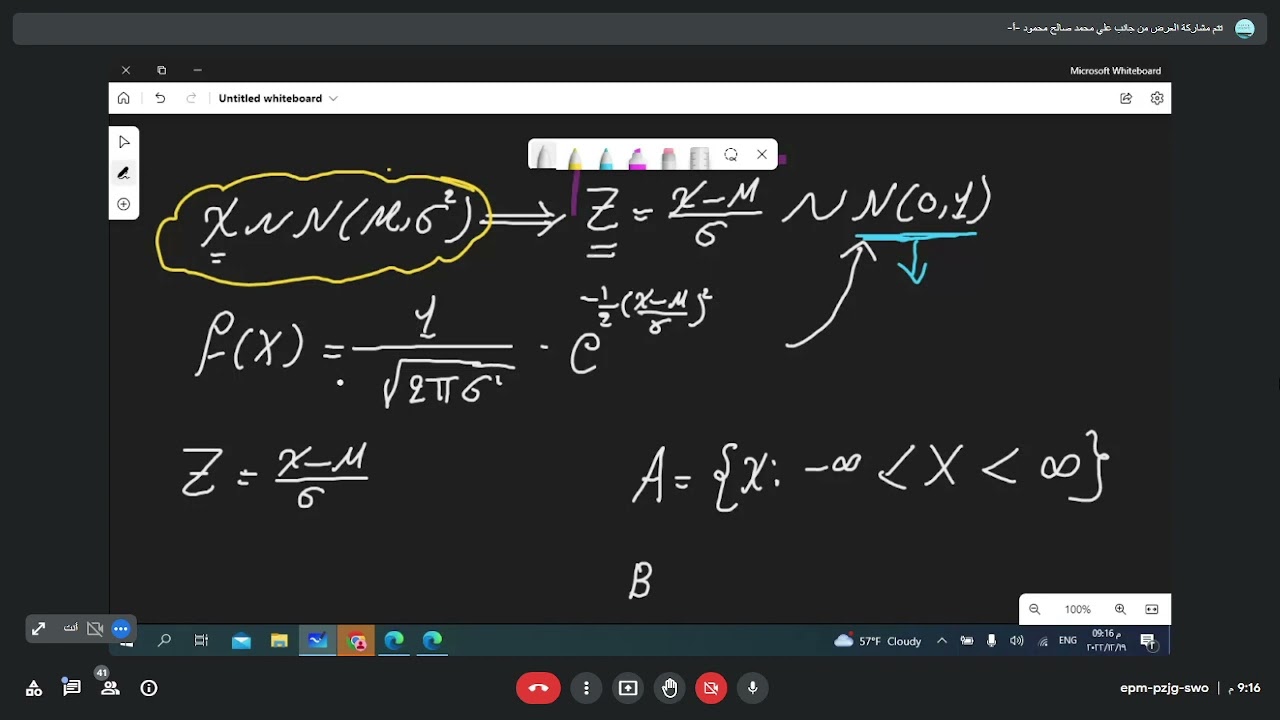 تتم مشاركة العرض من جانب علي محمد صالح محمود -أ-
Microsoft Whiteboard
Untitled whiteboard
x ~ N(μ,σ²) ⟹ Z = x-μ/σ ~ N(0,1)
f(x) = 1/√2πσ² · e^-1/2(x-μ/σ)²
Z = x-μ/σ
A = {x: -∞ < X < ∞}
B
100%
57°F Cloudy
ENG
09:16 م
٢٠٢٢/١٢/١٩
1
41
epm-pzjg-swo | 9:16 م